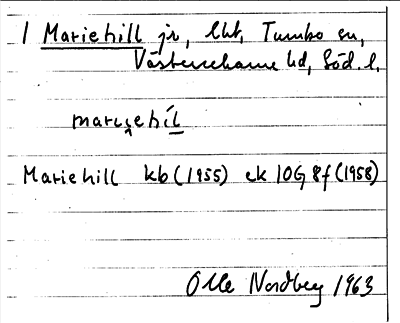 1 Mariehill jr, lht, Tumbo sn,
Västerrekarne hd, Söd. l.
mariehil
Mariehill kb (1955) ek 10G 8f (1958)
Olle Nordberg 1963